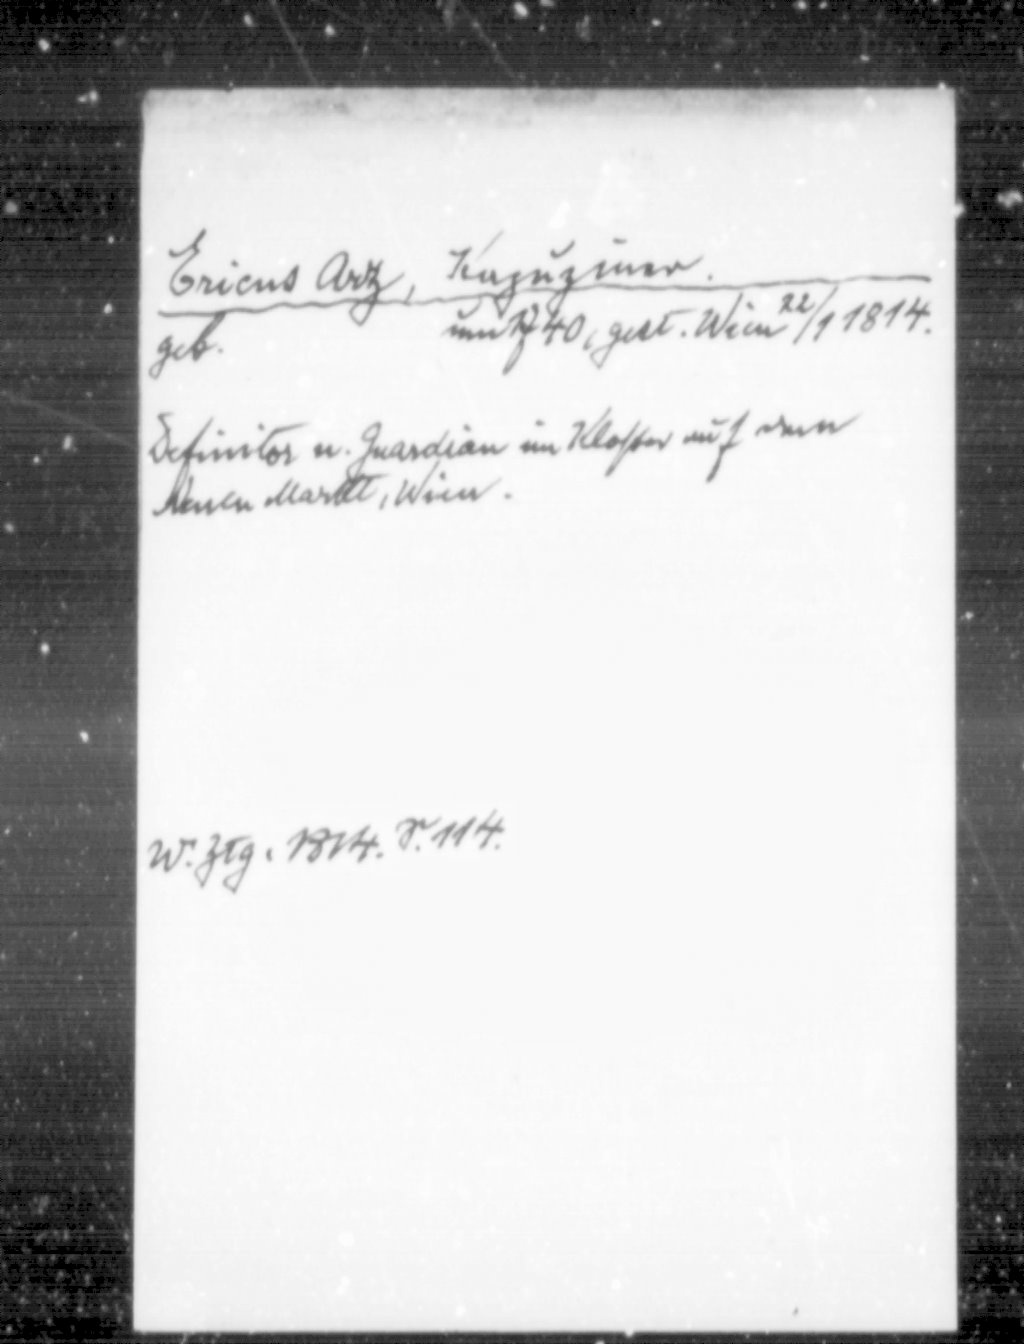 Ericus Arz, Kapuziner.
geb. um 1740, gest. Wien 22/1 1814.
Definitor u. Guardian im Kloster auf dem
Neuen Markt, Wien.
W. Ztg. 1814. S. 114.